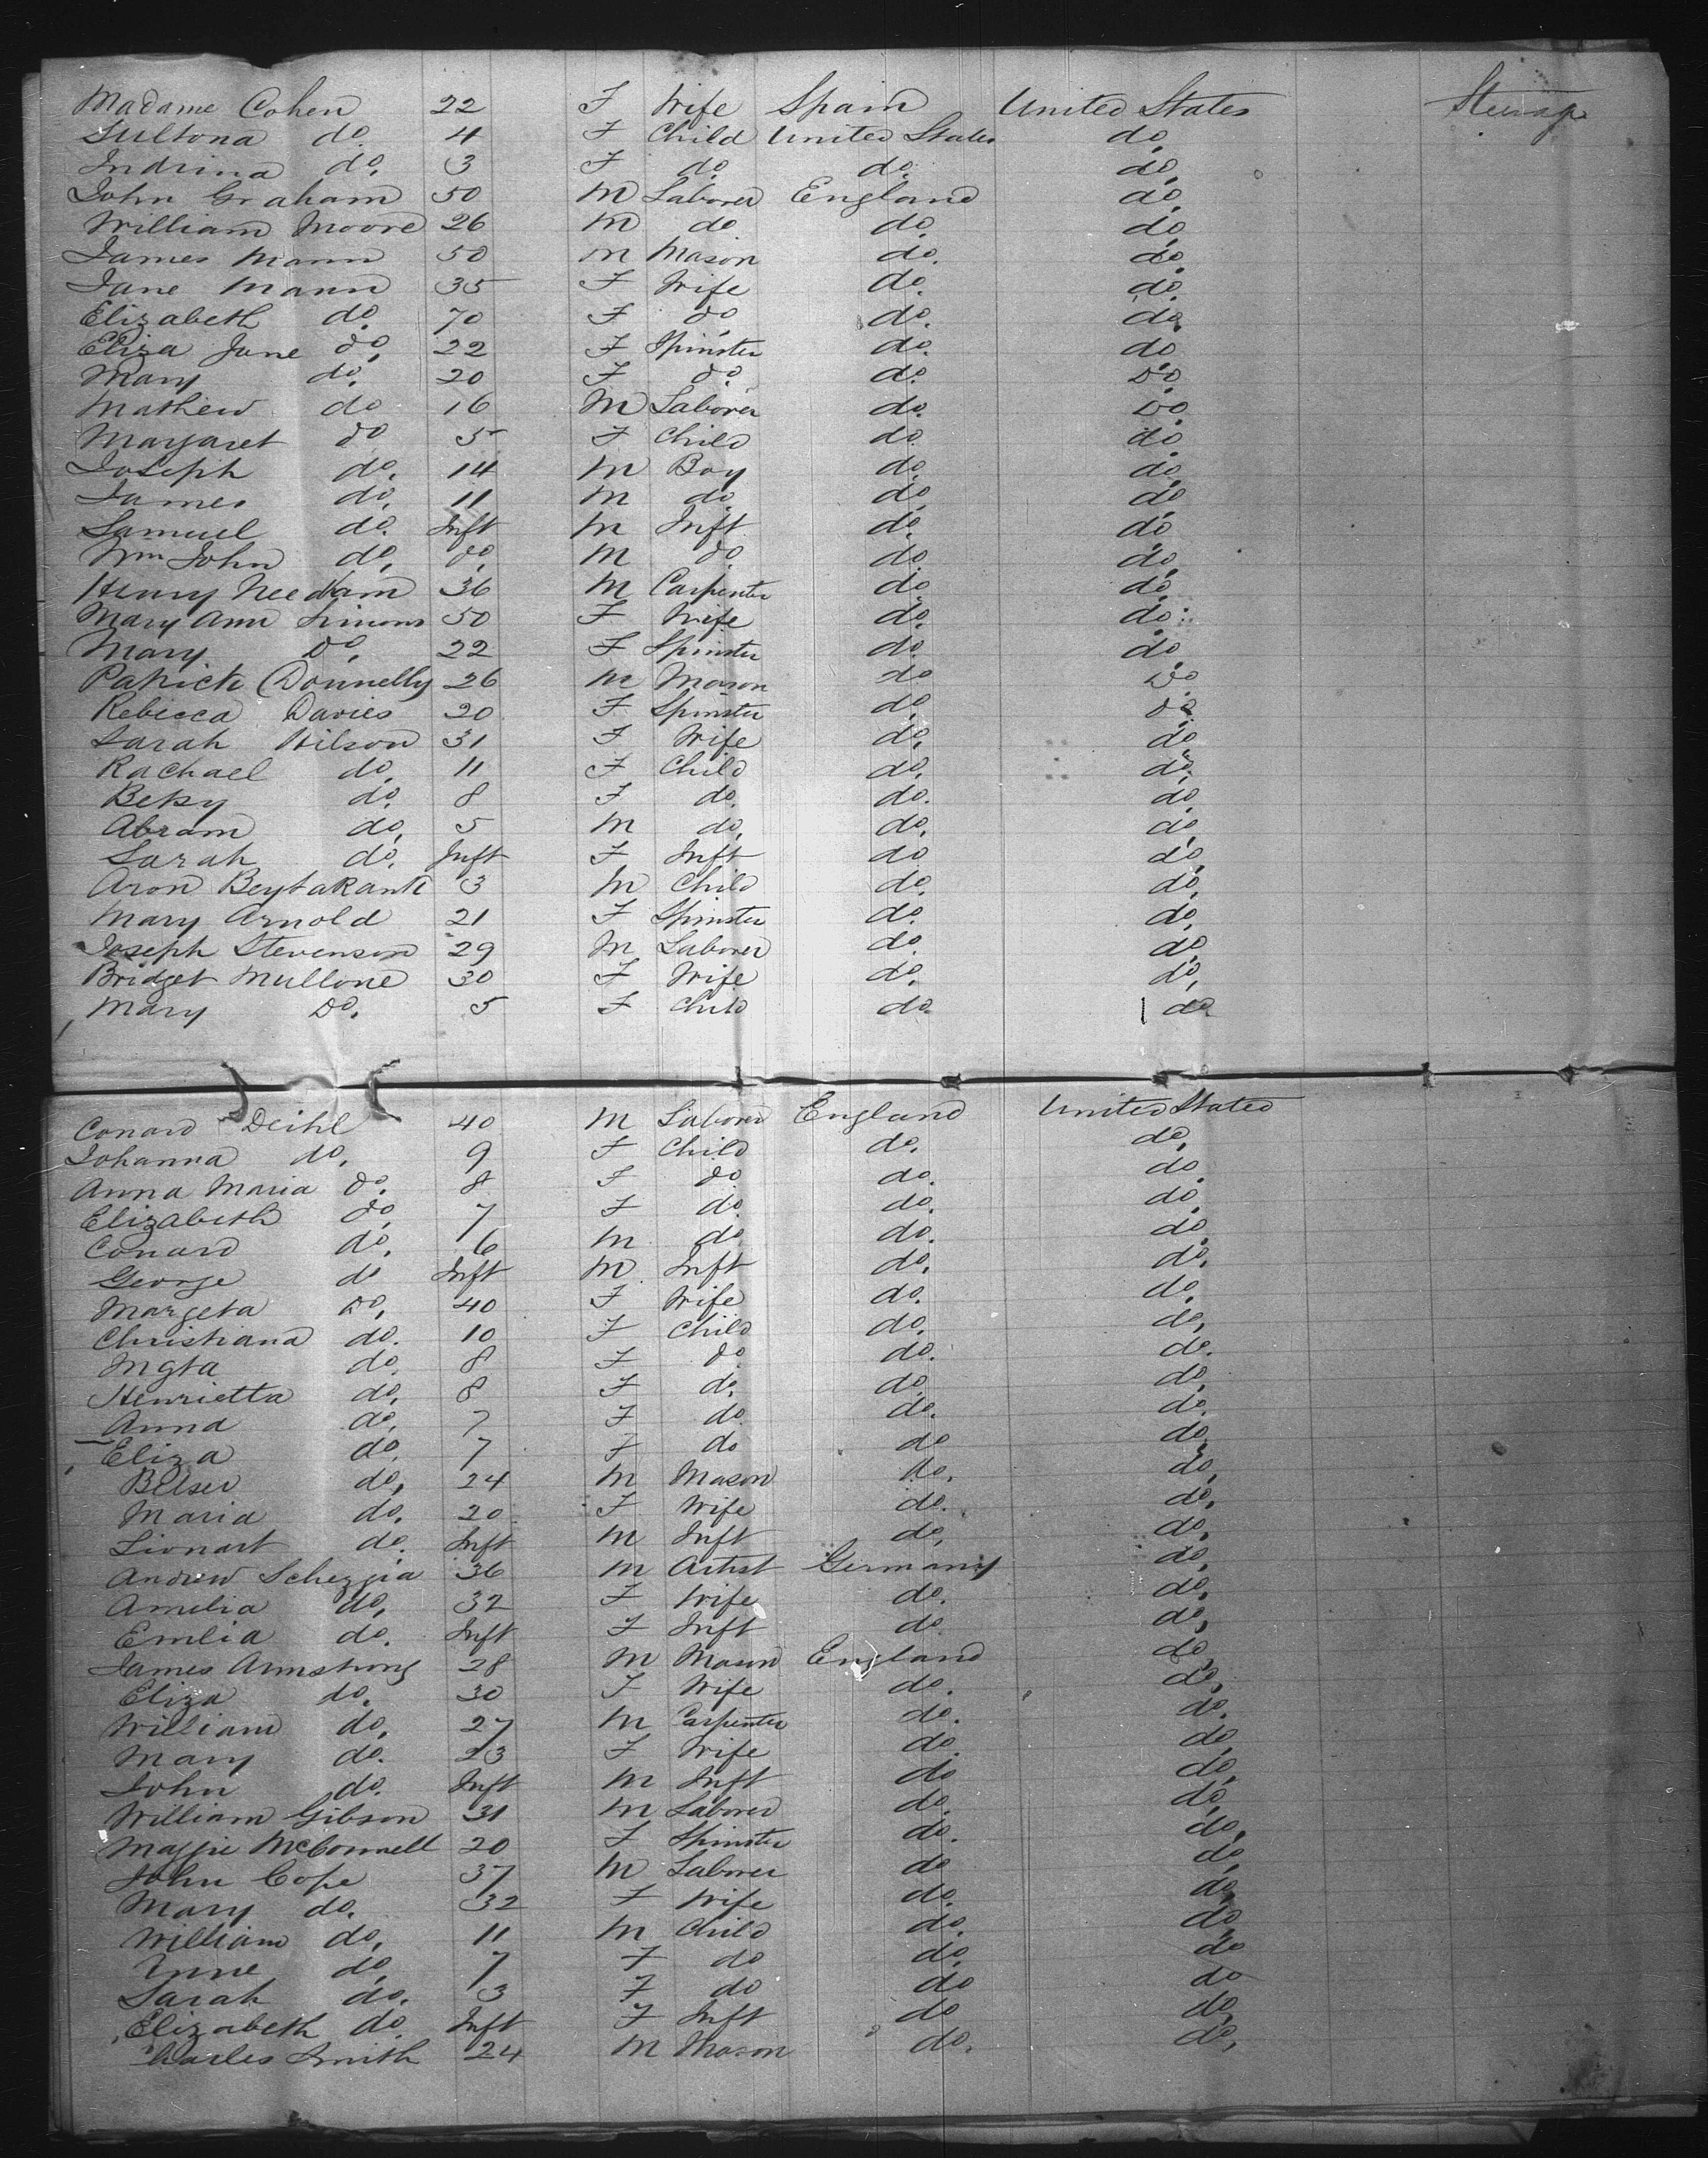 Madame Cohen 22 F Wife Spain United States Steerage
Sultona do. 4 F Child United States do.
Indrina do. 3 F do. do. do.
John Graham 50 M Laborer England do.
William Moore 26 M do do. do.
James Mann 50 M Mason do. do.
Jane Mann 35 F Wife do. do.
Elizabeth do. 70 F do. do. do.
Eliza Jane do. 22 F Spinster do. do
Mary do. 20 F do. do. Do.
Mathew do 16 M Laborer do. Do
Margaret do 5 F Child do. do
Joseph do. 14 M Boy do. do.
James do. 11 M do. do. do.
Samuel do. Inft M Inft do. do.
Wm John do. do. M do. do. do.
Henry Needham 36 M Carpenter do. do.
Mary Ann Simons 50 F Wife do. do.
Mary Do. 22 F Spinster do. do
Patrick Donnelly 26 M Mason do Do
Rebecca Davies 20 F Spinster do. do.
Sarah Wilson 31 F Wife do. do.
Rachael do. 11 F Child do. do.
Betsy do. 8 F do. do. do.
Abram do. 5 M do. do. do.
Sarah do. Inft F Inft do do.
Aron 3 M Child do. do.
Mary Arnold 21 F Spinster do. do.
Joseph Stevenson 29 M Laborer do. do.
Bridget Mullone 30 F Wife do. do.
Mary Do. 5 F Child do. do
Conard Deihl 40 M Laborer England United States
Johanna do. 9 F Child do. do.
Anna Maria do. 8 F do do. do
Elizabeth do. 7 F do. do. do.
Conard do. 6 M do do. do.
George do Inft M Inft do. do.
Margeta Do. 40 F Wife do. do.
Christiana do. 10 F Child do. do.
Mgta do. 8 F do do. do.
Henrietta do. 8 F do. do. do.
Anna do. 7 F do. do. do.
Eliza do. 7 F do do do.
Belser do. 24 M Mason do. do.
Maria do. 20 F Wife do. do.
Lionart do. Inft M Inft do. do.
Andrew 36 M Artist Germany do.
Amelia do. 32 F Wife do. do.
Emlia do. Inft F Inft do. do.
James Armstrong 28 M Mason England do.
Eliza do. 30 F Wife do. do.
William do. 27 M Carpenter do. do.
Mary do. 23 F Wife do. do.
John do. Inft M Inft do do.
William Gibson 31 M Laborer do. do.
Maggie McConnell 20 F Spinster do. do.
John Cope 37 M Laborer do do.
Mary do. 32 F Wife do. do.
William do. 11 M Child do. do.
Anne do. 7 F do do. do
Sarah do. 3 F do do do
Elizabeth do. Inft F Inft do do.
Charles Smith 24 M Mason do. do.